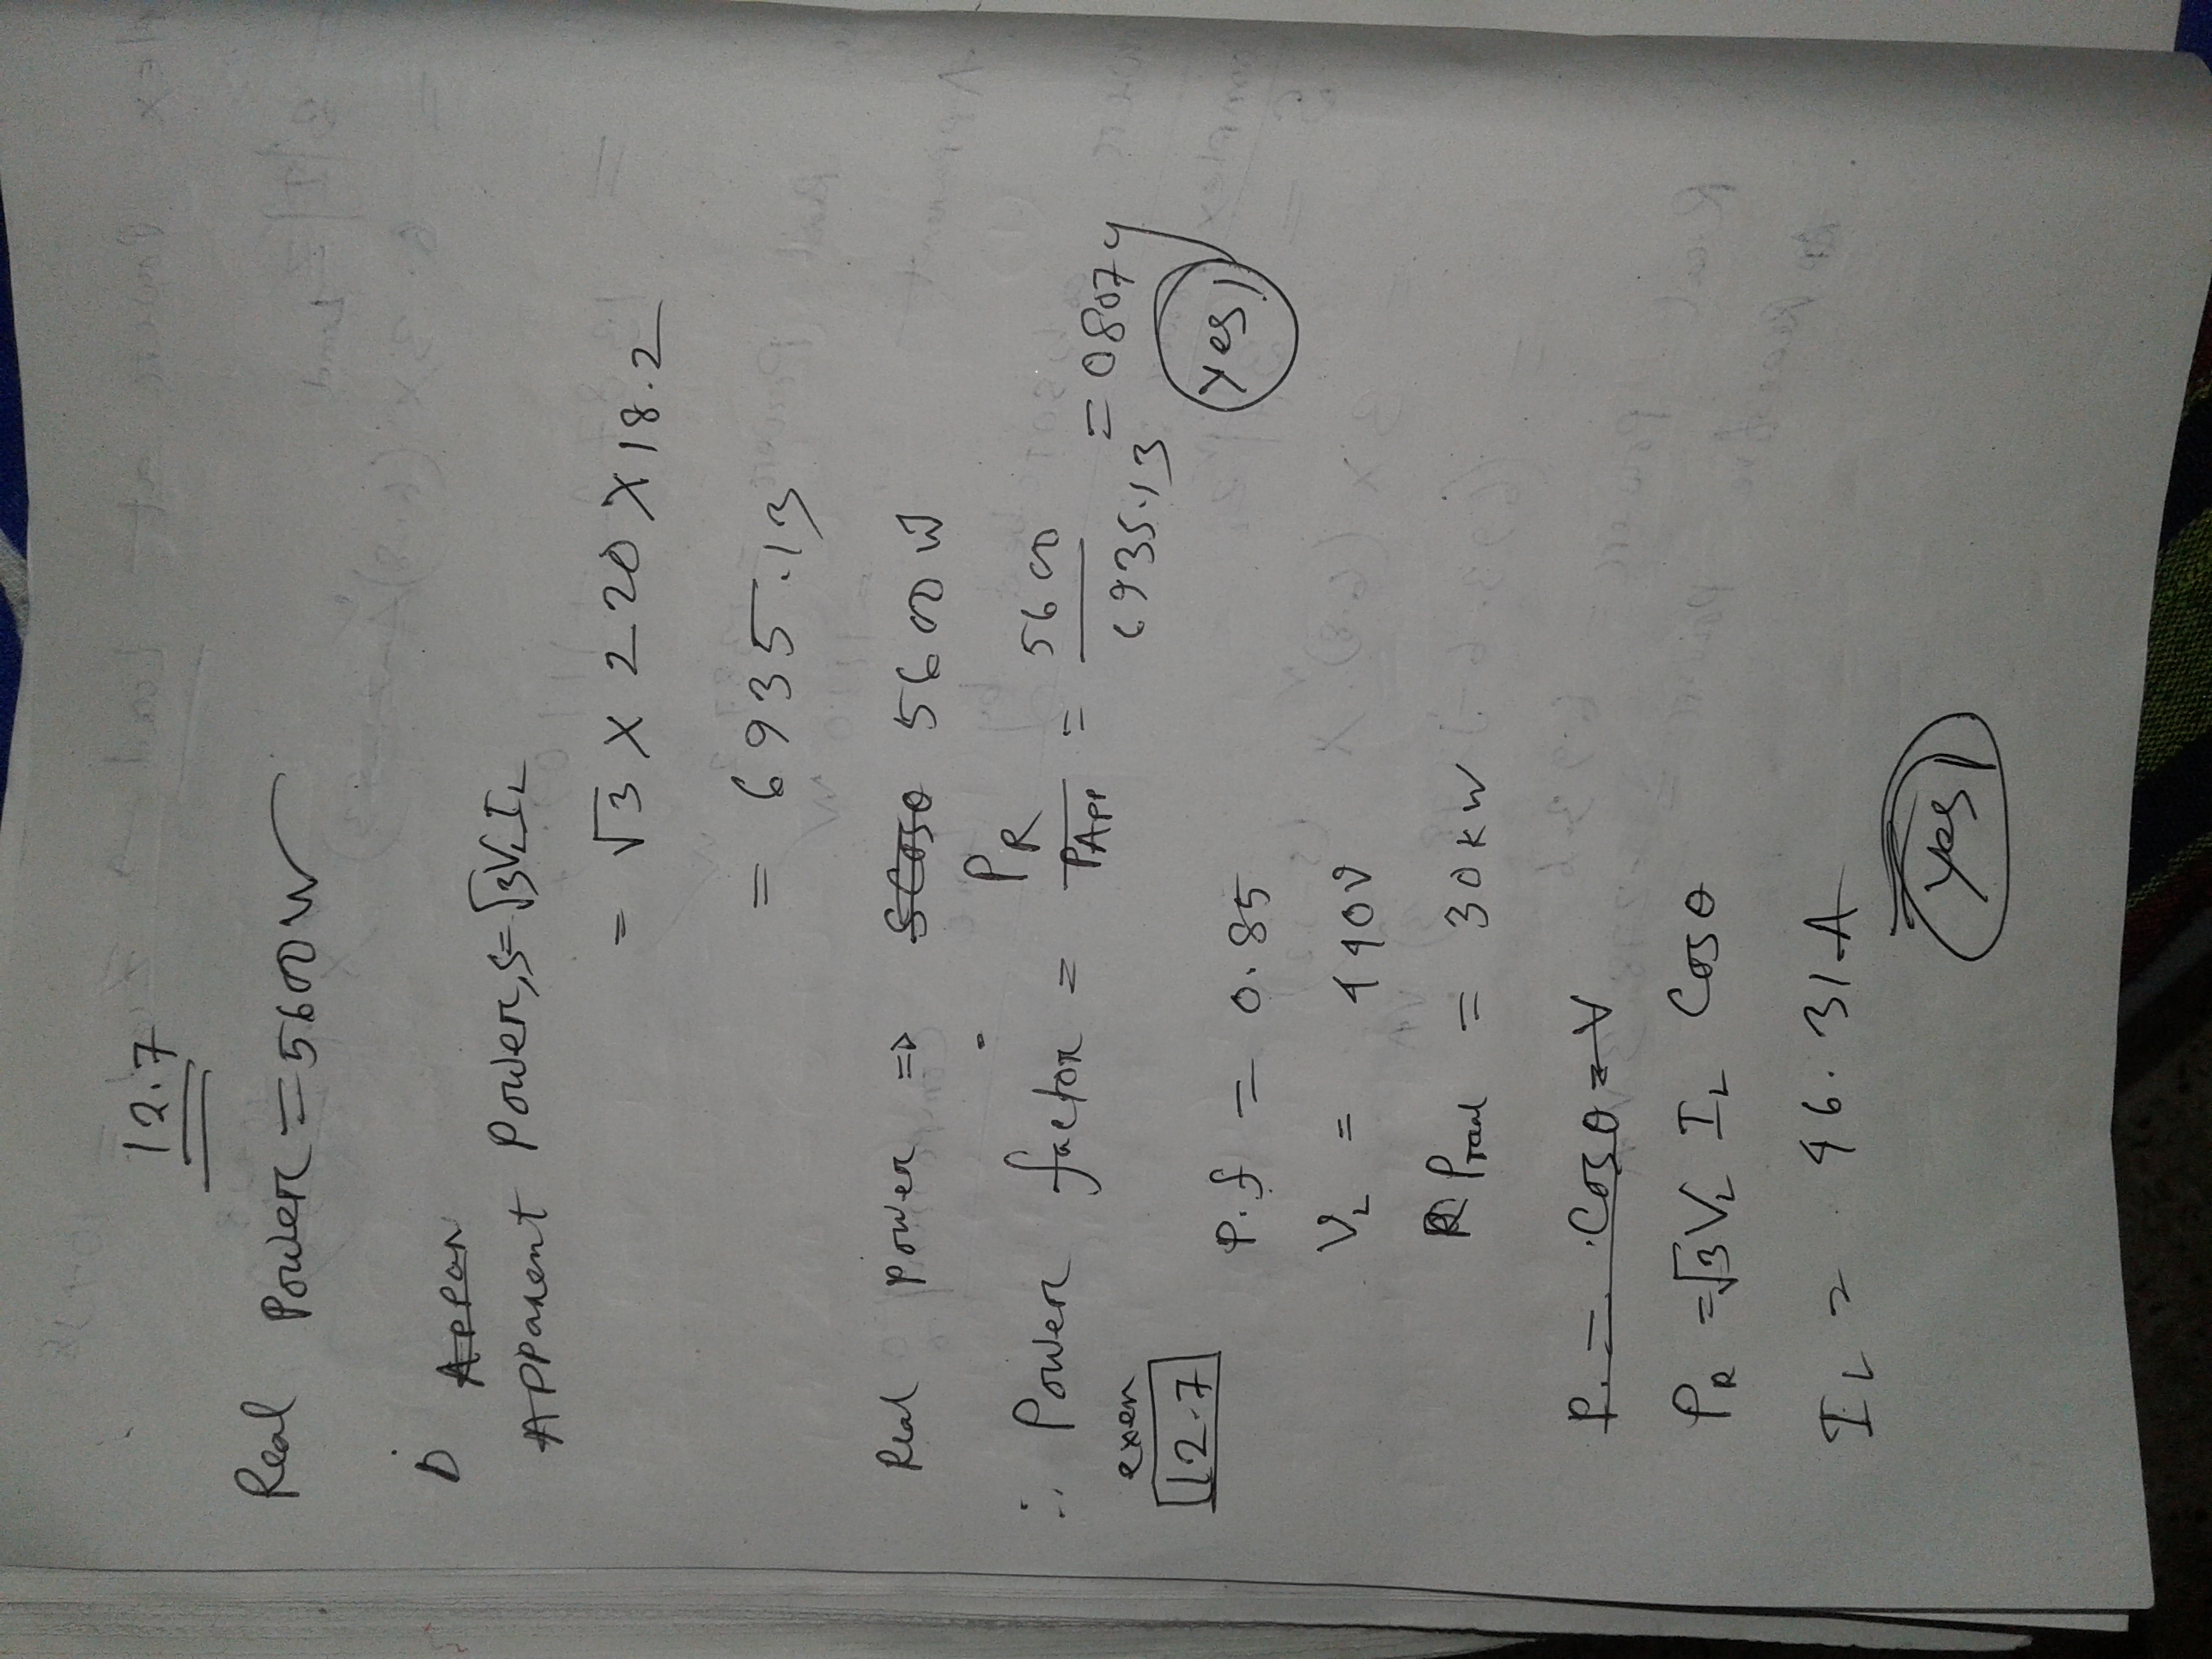 12.7
Real Power = 5600W
i)
Appar
Apparent Power, S = √3 V_L I_L
= √3 X 220 X 18.2
= 6935.13
Real power ⇒ SCosθ 5600 W
∴ Power factor = P_R / P_App = 5600 / 6935.13 = 0807
Yes!
exer
12.7
P.f = 0.85
V_L = 440V
P_real = 30kW
P. = .Cosθ = V
P_R = √3 V_L I_L Cosθ
I_L = 46.31A
Yes!